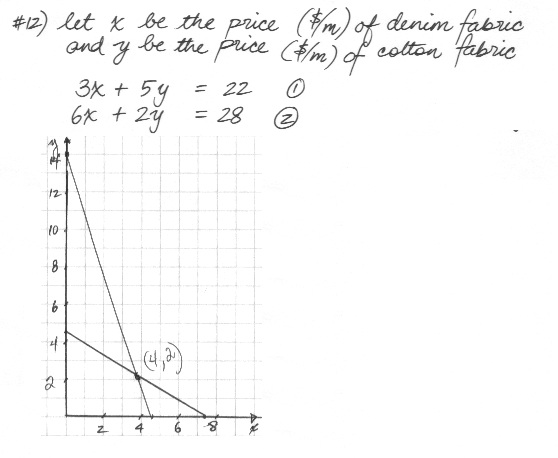 #12) let x be the price ($/m) of denim fabric
and y be the price ($/m) of cotton fabric
3x + 5y = 22 ①
6x + 2y = 28 ②
y
14
12
10
8
6
4
2
(4,2)
2 4 6 8 x